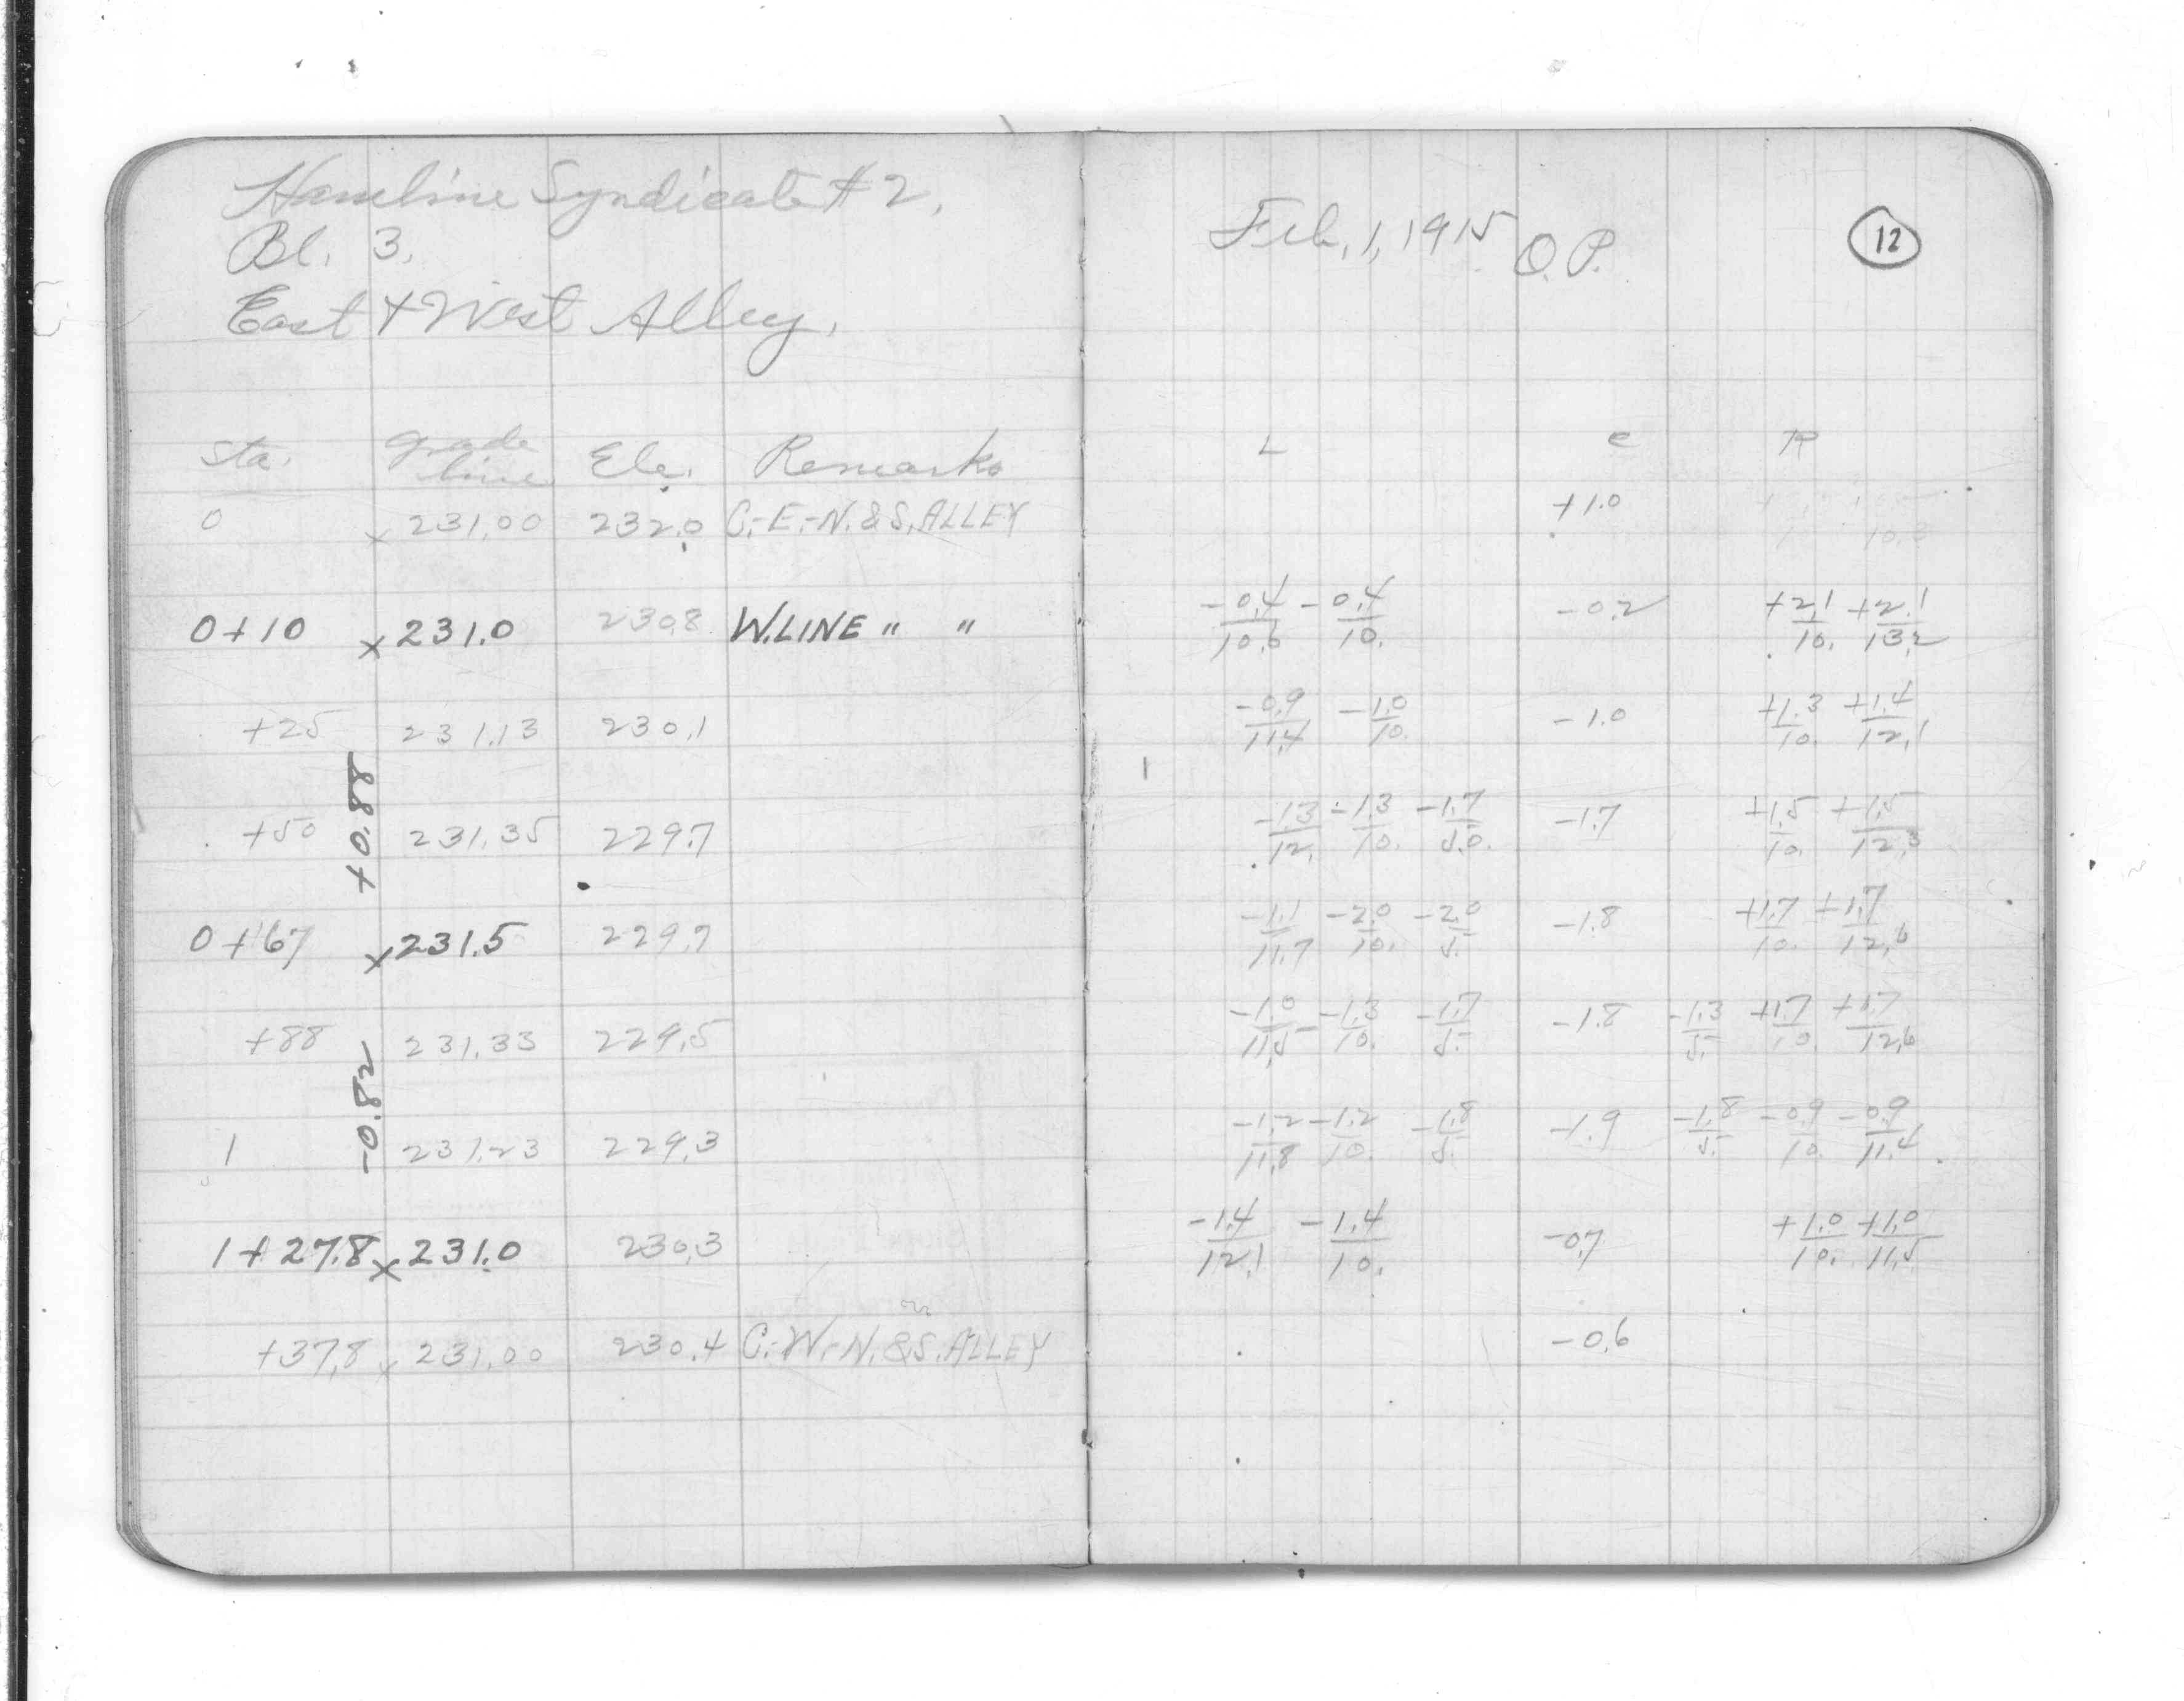 Hamline Syndicate #2,
Bl. 3.
East & West Alley.
Sta. grade line Ele. Remarks
0 x 231.00 232.0 C.-E.-N.&S. ALLEY
0+10 x 231.0 230.8 W.LINE " "
+25 231.13 230.1
+0.88
+50 231.35 229.7
0+67 x 231.5 229.7
+88 231.33 229.5
-0.82
1 231.23 229.3
1+27.8 x 231.0 230.3
+37.8 x 231.00 230.4 C.-W.-N.&S. ALLEY
Feb. 1, 1915 O.P. 12
L C R
+1.0
-0.4/10.6 -0.4/10. -0.2 +2.1/10. +2.1/13.2
-0.9/11.4 -1.0/10. -1.0 +1.3/10. +1.4/12.1
-1.3/12. -1.3/10. -1.7/5.0. -1.7 +1.5/10. +1.5/12.3
-1.1/11.7 -2.0/10. -2.0/5. -1.8 +1.7/10. +1.7/12.6
-1.0/11.5 -1.3/10. -1.7/5. -1.8 -1.3/5. +1.7/10. +1.7/12.6
-1.2/11.8 -1.2/10. -1.8/5. -1.9 -1.8/5. -0.9/10. -0.9/11.4
-1.4/12.1 -1.4/10. -0.7 +1.0/10. +1.0/11.5
-0.6